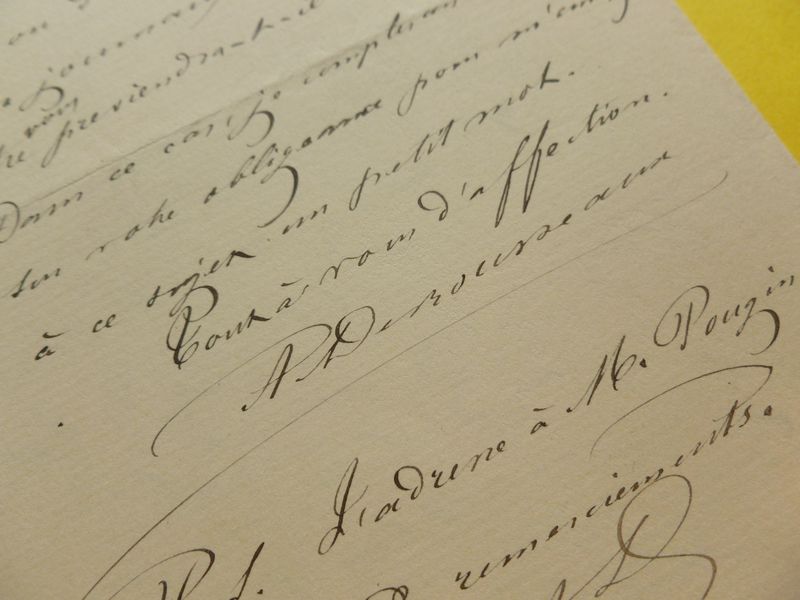 journau
vous
previendra-t-il
Dans ce cas, je compterai
sur votre obligeance pour m'envo
à ce sujet un petit mot.
Tout à vous d'affection.
ADesrousseaux
P.S. J'adresse à M. Pougin
remerciements.
AD